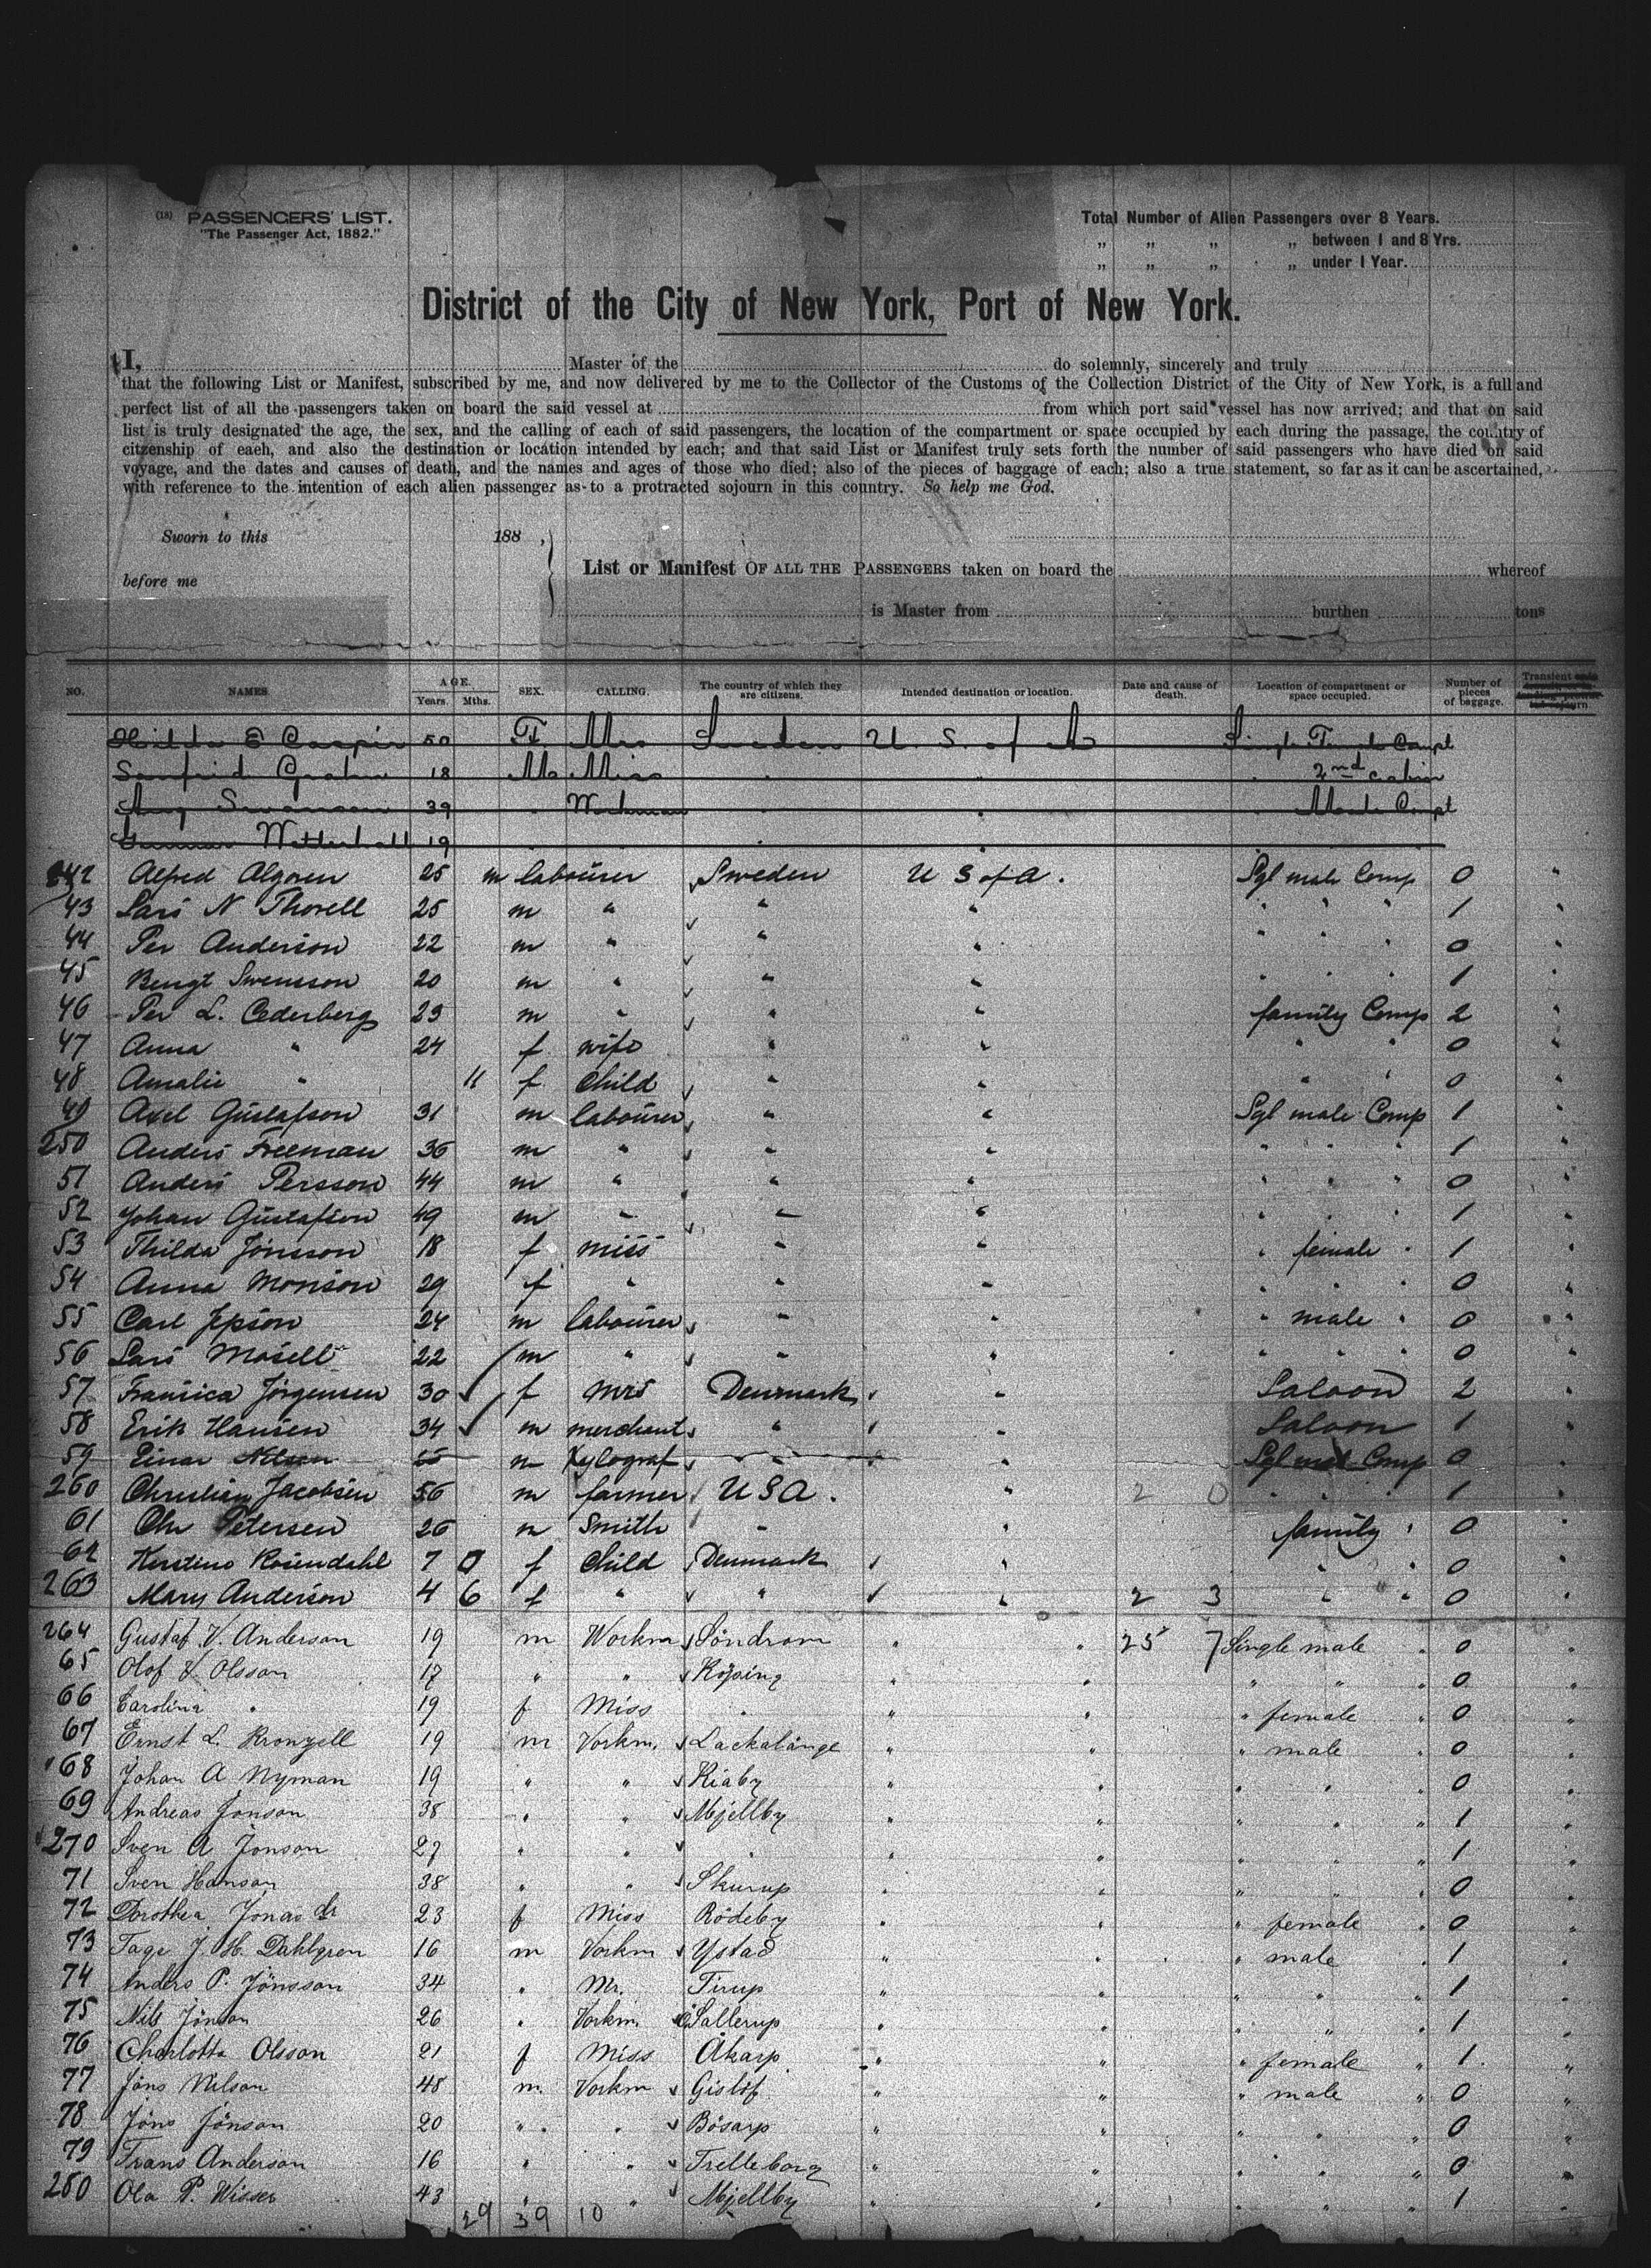 (18) PASSENGERS' LIST.
"The Passenger Act, 1882."
Total Number of Alien Passengers over 8 Years.
„ „ „ „ between 1 and 8 Yrs.
„ „ „ „ under 1 Year.
District of the City of New York, Port of New York.
I, Master of the do solemnly, sincerely and truly
that the following List or Manifest, subscribed by me, and now delivered by me to the Collector of the Customs of the Collection District of the City of New York, is a full and
perfect list of all the passengers taken on board the said vessel at from which port said vessel has now arrived; and that on said
list is truly designated the age, the sex, and the calling of each of said passengers, the location of the compartment or space occupied by each during the passage, the country of
citizenship of each, and also the destination or location intended by each; and that said List or Manifest truly sets forth the number of said passengers who have died on said
voyage, and the dates and causes of death, and the names and ages of those who died; also of the pieces of baggage of each; also a true statement, so far as it can be ascertained,
with reference to the intention of each alien passenger as to a protracted sojourn in this country. So help me God.
Sworn to this 188 ,
before me
List or Manifest OF ALL THE PASSENGERS taken on board the whereof
is Master from burthen tons
NO. NAMES AGE. Years. Mths. SEX. CALLING. The country of which they are citizens. Intended destination or location. Date and cause of death. Location of compartment or space occupied. Number of pieces of baggage. Transient
Hilda E 50 F. Mrs Sweden U. S. of A Single Female Compt
18 Miss " " 2nd cabin
Swanson 39 " Workman " " Male Compt
Gunnar Wetterhall 19 " " " "
242 Alfred Algren 25 m labourer Sweden U S of A. Sgl male Comp 0 "
43 Lars N Thorell 25 m " " " " " " 1 "
44 Per Anderson 22 m " " " " " " 0 "
45 Bengt Swensson 20 m " " " " " " 1 "
46 Per L. Cederberg 23 m " " " family Comp 2 "
47 Anna " 24 f wife " " " " 0 "
48 Amalie " 11 f Child " " " " 0 "
49 Axel Gustafson 31 m labourer " " Sgl male Comp 1 "
250 Anders Freeman 36 m " " " " " " 1 "
51 Anders Persson 44 m " " " " " " 0 "
52 Johan Gustafson 49 m " " " " " " 1 "
53 Thilda Jönsson 18 f miss " " " female " 1 "
54 Anna Monson 29 f " " " " " " 0 "
55 Carl Jepson 24 m labourer " " " male " 0 "
56 Lars Mosell 22 m " " " " " " 0 "
57 Fransica Jörgensen 30 f mrs Denmark " Saloon 2 "
58 Erik Hansen 34 m merchant " " Saloon 1 "
59 Einar Nilsen m Xylograf " " Sgl male Comp 0 "
260 Christian Jacobsen 56 m farmer USA. " 2 0 " " " 1 "
61 Chr Petersen 26 m Smith " " family " 0 "
62 Kerstine Rosendahl 7 0 f Child Denmark " " " 0 "
263 Mary Anderson 4 6 f " " " 2 3 " " 0 "
264 Gustaf V. Anderson 19 m Workm Söndrom " " 25 7 Single male 0 "
65 Olof Olsson 17 " " Köping " " " " " 0 "
66 Carolina " 19 f Miss " " " " female " 0 "
67 Ernst L. Kronzell 19 m Vorkm. Lackalänge " " " male " 0 "
68 Johan A Nyman 19 " " Kiaby " " " " " 0 "
69 Andreas Jonson 38 " " Mjellby " " " " " 1 "
270 Sven A Jonson 27 " " " " " " " " 1 "
71 Sven Hanson 38 " " Skurup " " " " " 0 "
72 Dorothea Jonas dr 23 f Miss Rödeby " " " female " 0 "
73 Tage J. H. Dahlgren 16 m Vorkm Ystad " " " male " 1 "
74 Anders P. Jönsson 34 " Mr. Tirup " " " " " 1 "
75 Nils Jönson 26 " Vorkm. Sallerup " " " " " 1 "
76 Charlotta Olsson 21 f Miss Åkarp " " " female " 1 "
77 Jöns Nilson 48 m. Vorkm Gislöf " " " male " 0 "
78 Jöns Jönson 20 " " Bösarp " " " " " 0 "
79 Frans Anderson 16 " " Trelleborg " " " " " 0 "
280 Ola P. Wisser 43 " " Mjellby " " " " " 1 "
29 39 10